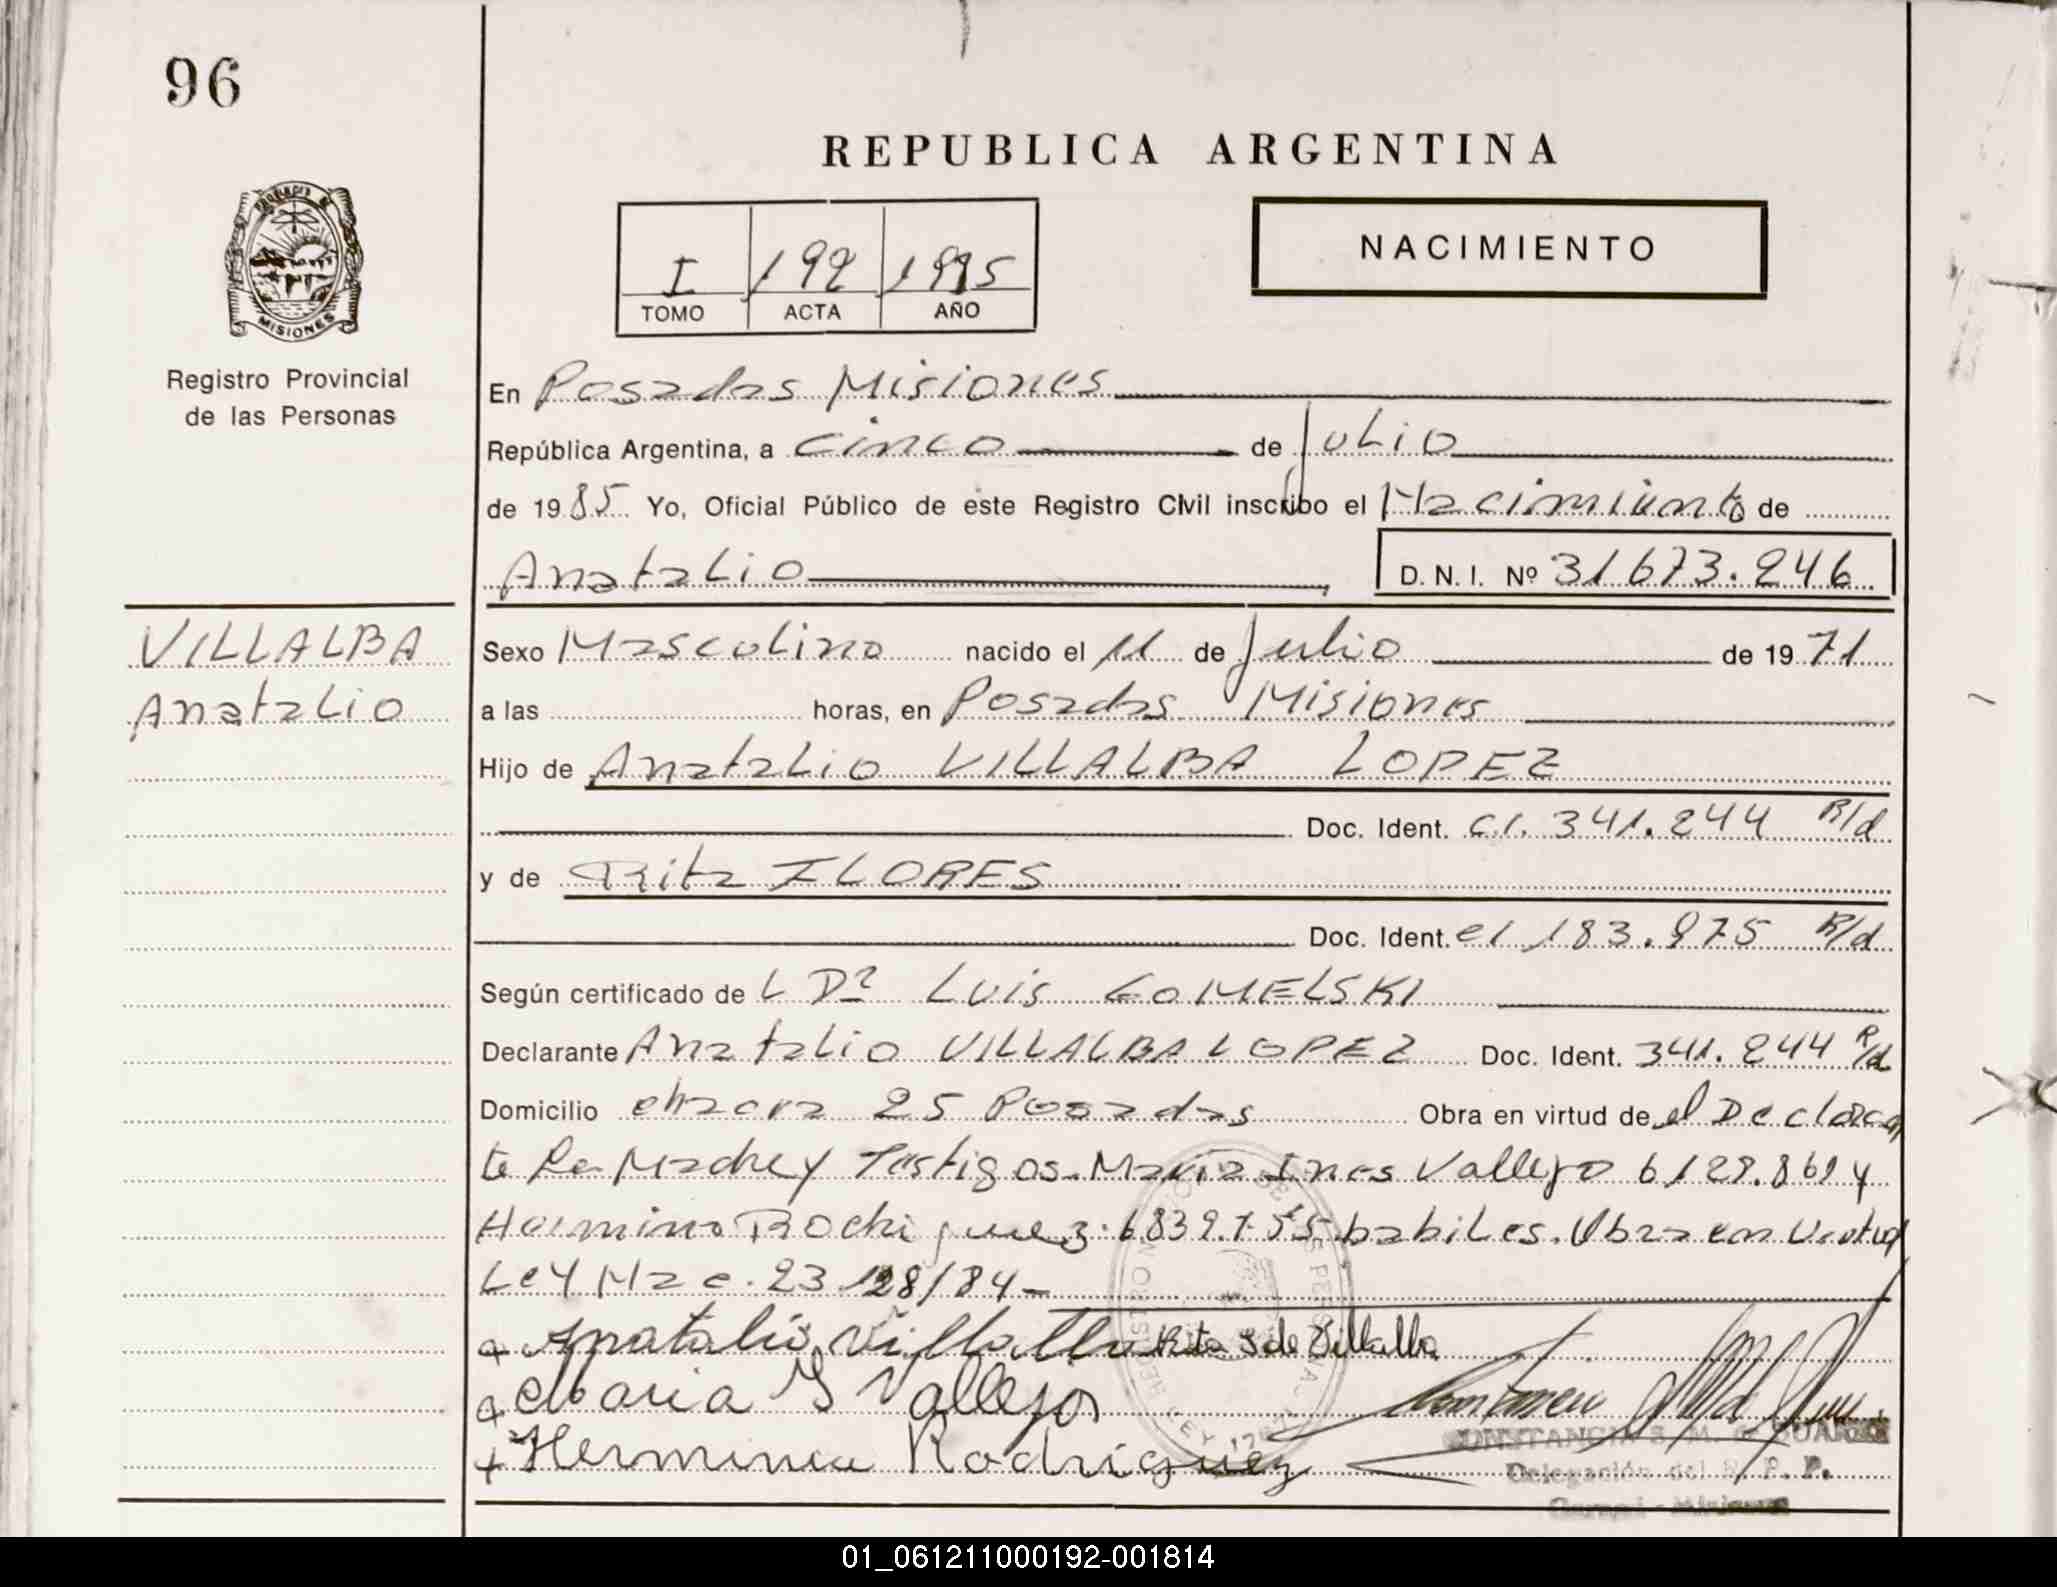 96
REPUBLICA ARGENTINA
I 192 1985
TOMO ACTA AÑO
NACIMIENTO
MISIONES
Registro Provincial
de las Personas
En Posadas Misiones
República Argentina, a cinco de Julio
de 1985 Yo, Oficial Público de este Registro Civil inscribo el Nacimiento de
Anatalio D.N.I. Nº 31673.246
VILLALBA
Anatalio
Sexo Masculino nacido el 11 de Julio de 1971
a las horas, en Posadas Misiones
Hijo de Anatalio VILLALBA LOPEZ
Doc. Ident. C.I. 341.244 R/d
y de Rita FLORES
Doc. Ident. CI 183.975 R/d
Según certificado de L Dr Luis GOMELSKI
Declarante Anatalio VILLALBA LOPEZ Doc. Ident. 341.244 R/d
Domicilio chacra 25 Posadas Obra en virtud de el Declaran
te la Madre y Testigos Maria Ines Vallejo 6129.869 y
Rodriguez 6839.755 habiles. Obra en Virtud
Ley Nac. 23128/84
Anatalio Villalba Rita de Villalba
Maria Y Vallejos
Herminia Rodriguez
CONSTANCIA S. M. de SUAREZ
Delegación del R. P. P.
Misiones
01_061211000192-001814